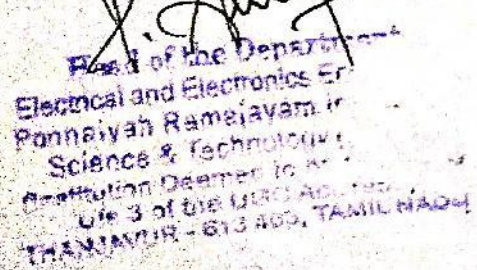 Head of the Department
Electrical and Electronics En
Ponnaiyah Ramajayam In
Science & Technology
(Institution Deemed to be
U/s 3 of the UGC Act,
THANJAVUR - 613 403, TAMIL NADU